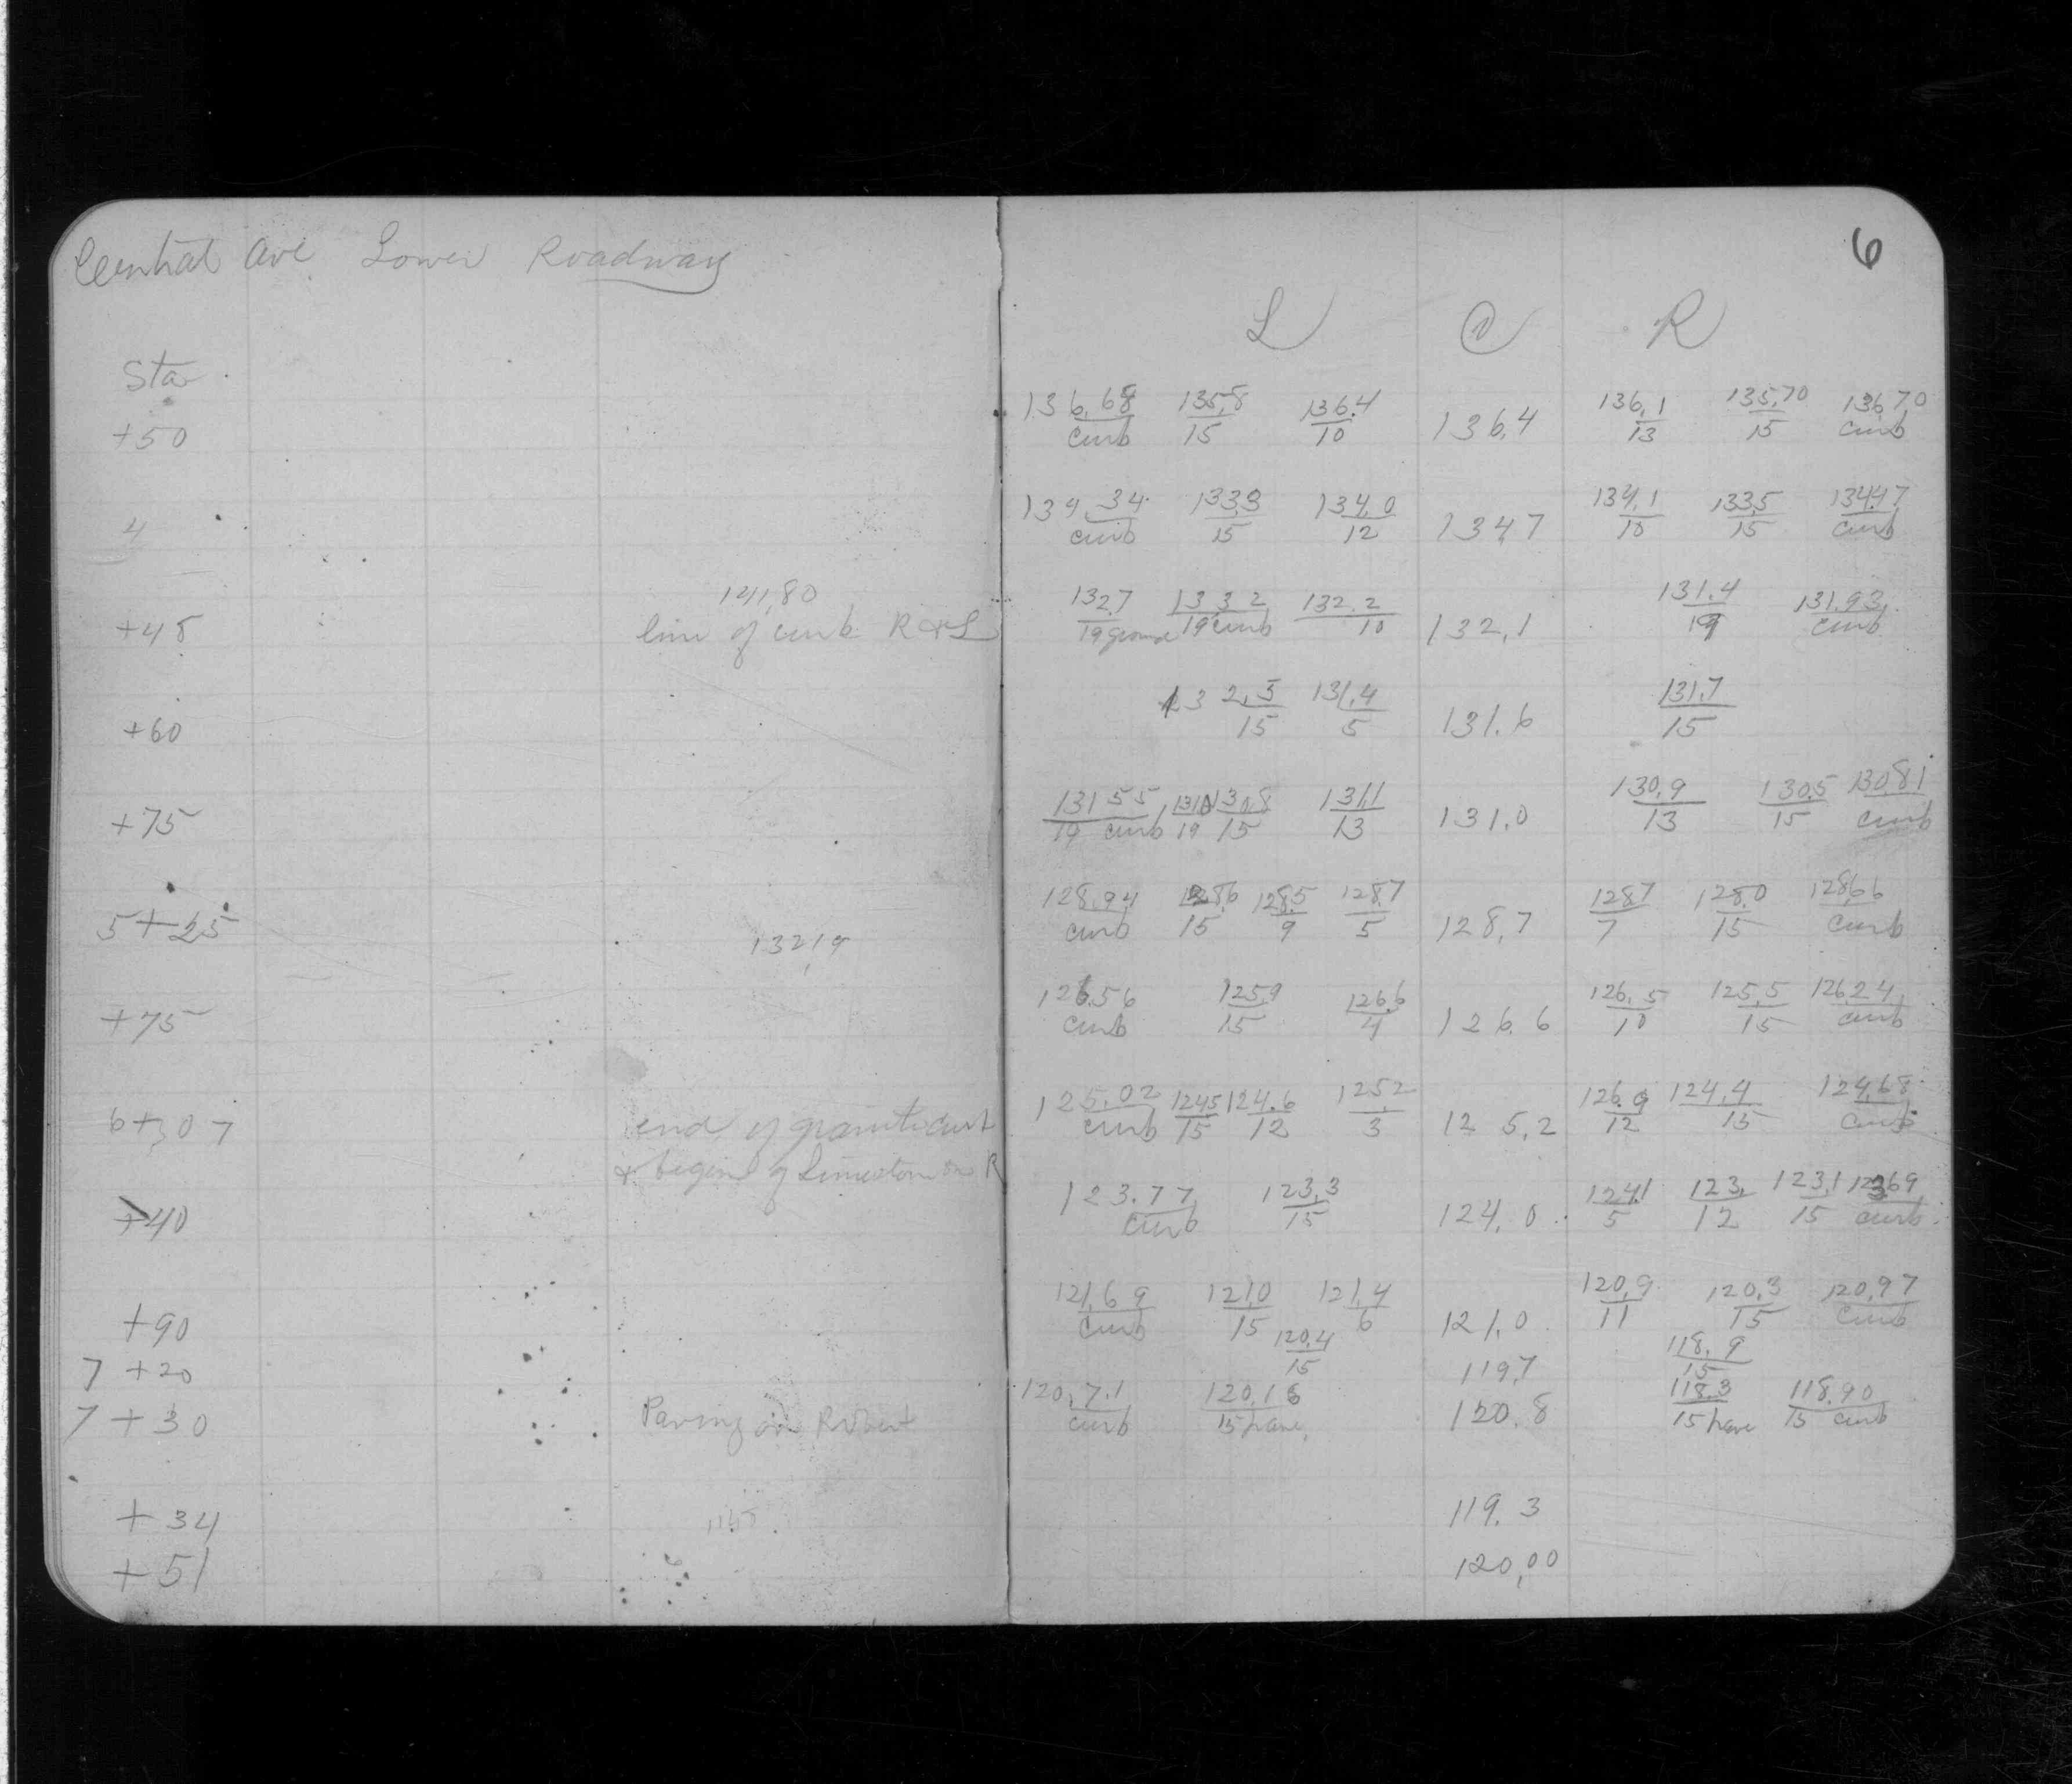 Central Ave Lower Roadway
6
L C R
Sta
+50 136.68/curb 135.8/15 136.4/10 136.4 136.1/13 135.70/15 136.70/curb
4 134.34/curb 133.3/15 134.0/12 134.7 134.1/10 133.5/15 134.47/curb
141.80
+48 line of curb R & L 132.7/19 ground 133.2/19 curb 132.2/10 132.1 131.4/19 131.93/curb
+60 132.5/15 131.4/5 131.6 131.7/15
+75 131.55/19 curb 131.0/19 130.8/15 131.1/13 131.0 130.9/13 130.5/15 130.81/curb
5+25 128.94/curb 128.6/15 128.5/9 128.7/5 128.7 128.7/7 128.0/15 128.66/curb
132.19
+75 126.56/curb 125.9/15 126.6/4 126.6 126.5/10 125.5/15 126.24/curb
6+07 end of granite curb 125.02/curb 124.5/15 124.6/12 125.2/3 125.2 126.9/12 124.4/15 124.68/curb
& begin of Limestone on R
+40 123.77/curb 123.3/15 124.0 124.1/5 123./12 123.1/15 123.69/curb
+90 121.69/curb 121.0/15 121.4/6 121.0 120.9/11 120.3/15 120.97/curb
7 +20 120.4/15 119.7 118.9/15
7 +30 Paving on Robert 120.71/curb 120.16/15 pave 120.8 118.3/15 pave 118.90/15 curb
+34 119.3
+51 120.00